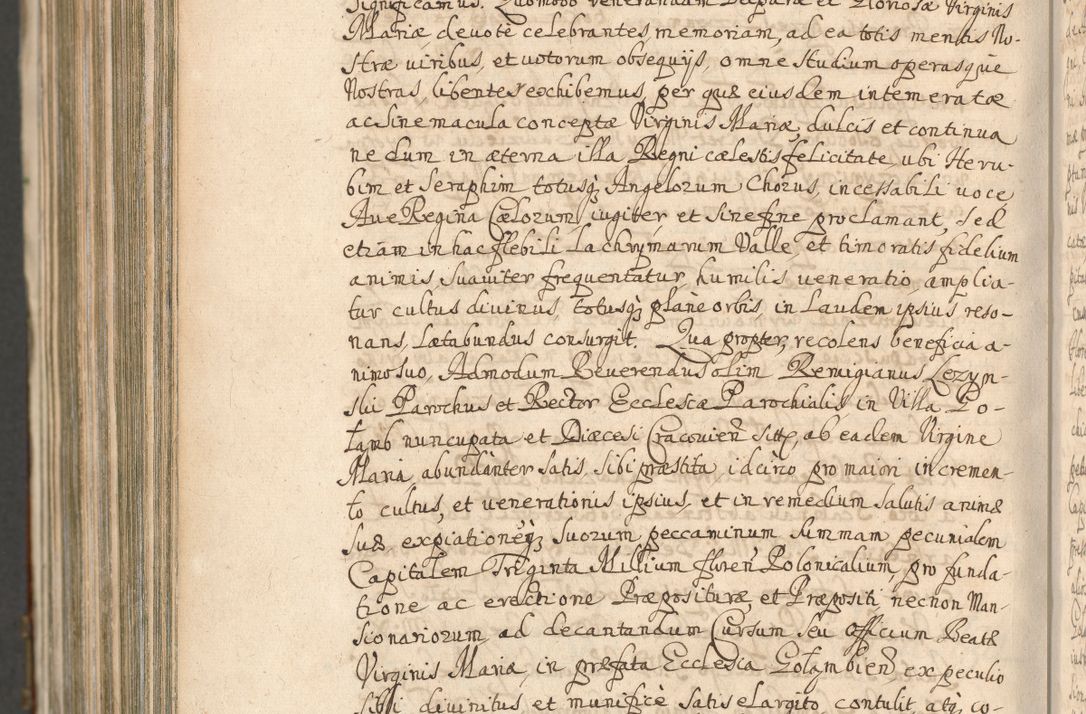 Significamus. Quomodo venerandam Deiparæ et Gloriosæ Virginis
Mariæ devotè celebrantes memoriam, ad ea totis mentis No-
stræ viribus, et votorum obsequijs, omne studium operasque
Nostras, libentes exchibemus, per quæ eiusdem intemeratæ
ac sine macula conceptæ Virginis Mariæ, dulcis et continua
ne dum in æterna illa Regni cælestis felicitate, ubi Heru-
bim et Seraphim totusq; Angelorum Chorus, incessabili uoce
Ave Regina Cælorum, iugiter et sine fine proclamant, sed
etiam in hac flebili Lachrymarum Valle, et timoratis fidelium
animis suauiter frequentatur, humilis ueneratio, amplia-
tur cultus diuinus, totusq; planè orbis, in Laudem ipsius reso-
nans, Lætabundus consurgit. Qua propter, recolens beneficia a-
nimo suo, Admodum Reverendus olim Remigianus Lezyn-
ski Parochus et Rector Ecclesæ Parochialis in Villa Go-
łamb nuncupata et Diæcesi Cracovien̄ sitæ, ab eadem Virgine
Maria abundanter satis, sibi præstita, idcirco pro maiori incremen-
to cultus, et uenerationis ipsius, et in remedium salutis animæ
suæ, expiationeq; suorum peccaminum summam pecunialem
Capitalem Triginta Millium floren̄ Polonicalium, pro funda-
tione ac erectione Præpositurae, et Præpositi necnon Man-
sionariorum, ad decantandum Cursum seu Officium Beatæ
Virginis Mariæ, in præfata Ecclesia Gołambien̄, ex peculio
sibi divinitus et munificè satis elargito, contulit, atq; co-